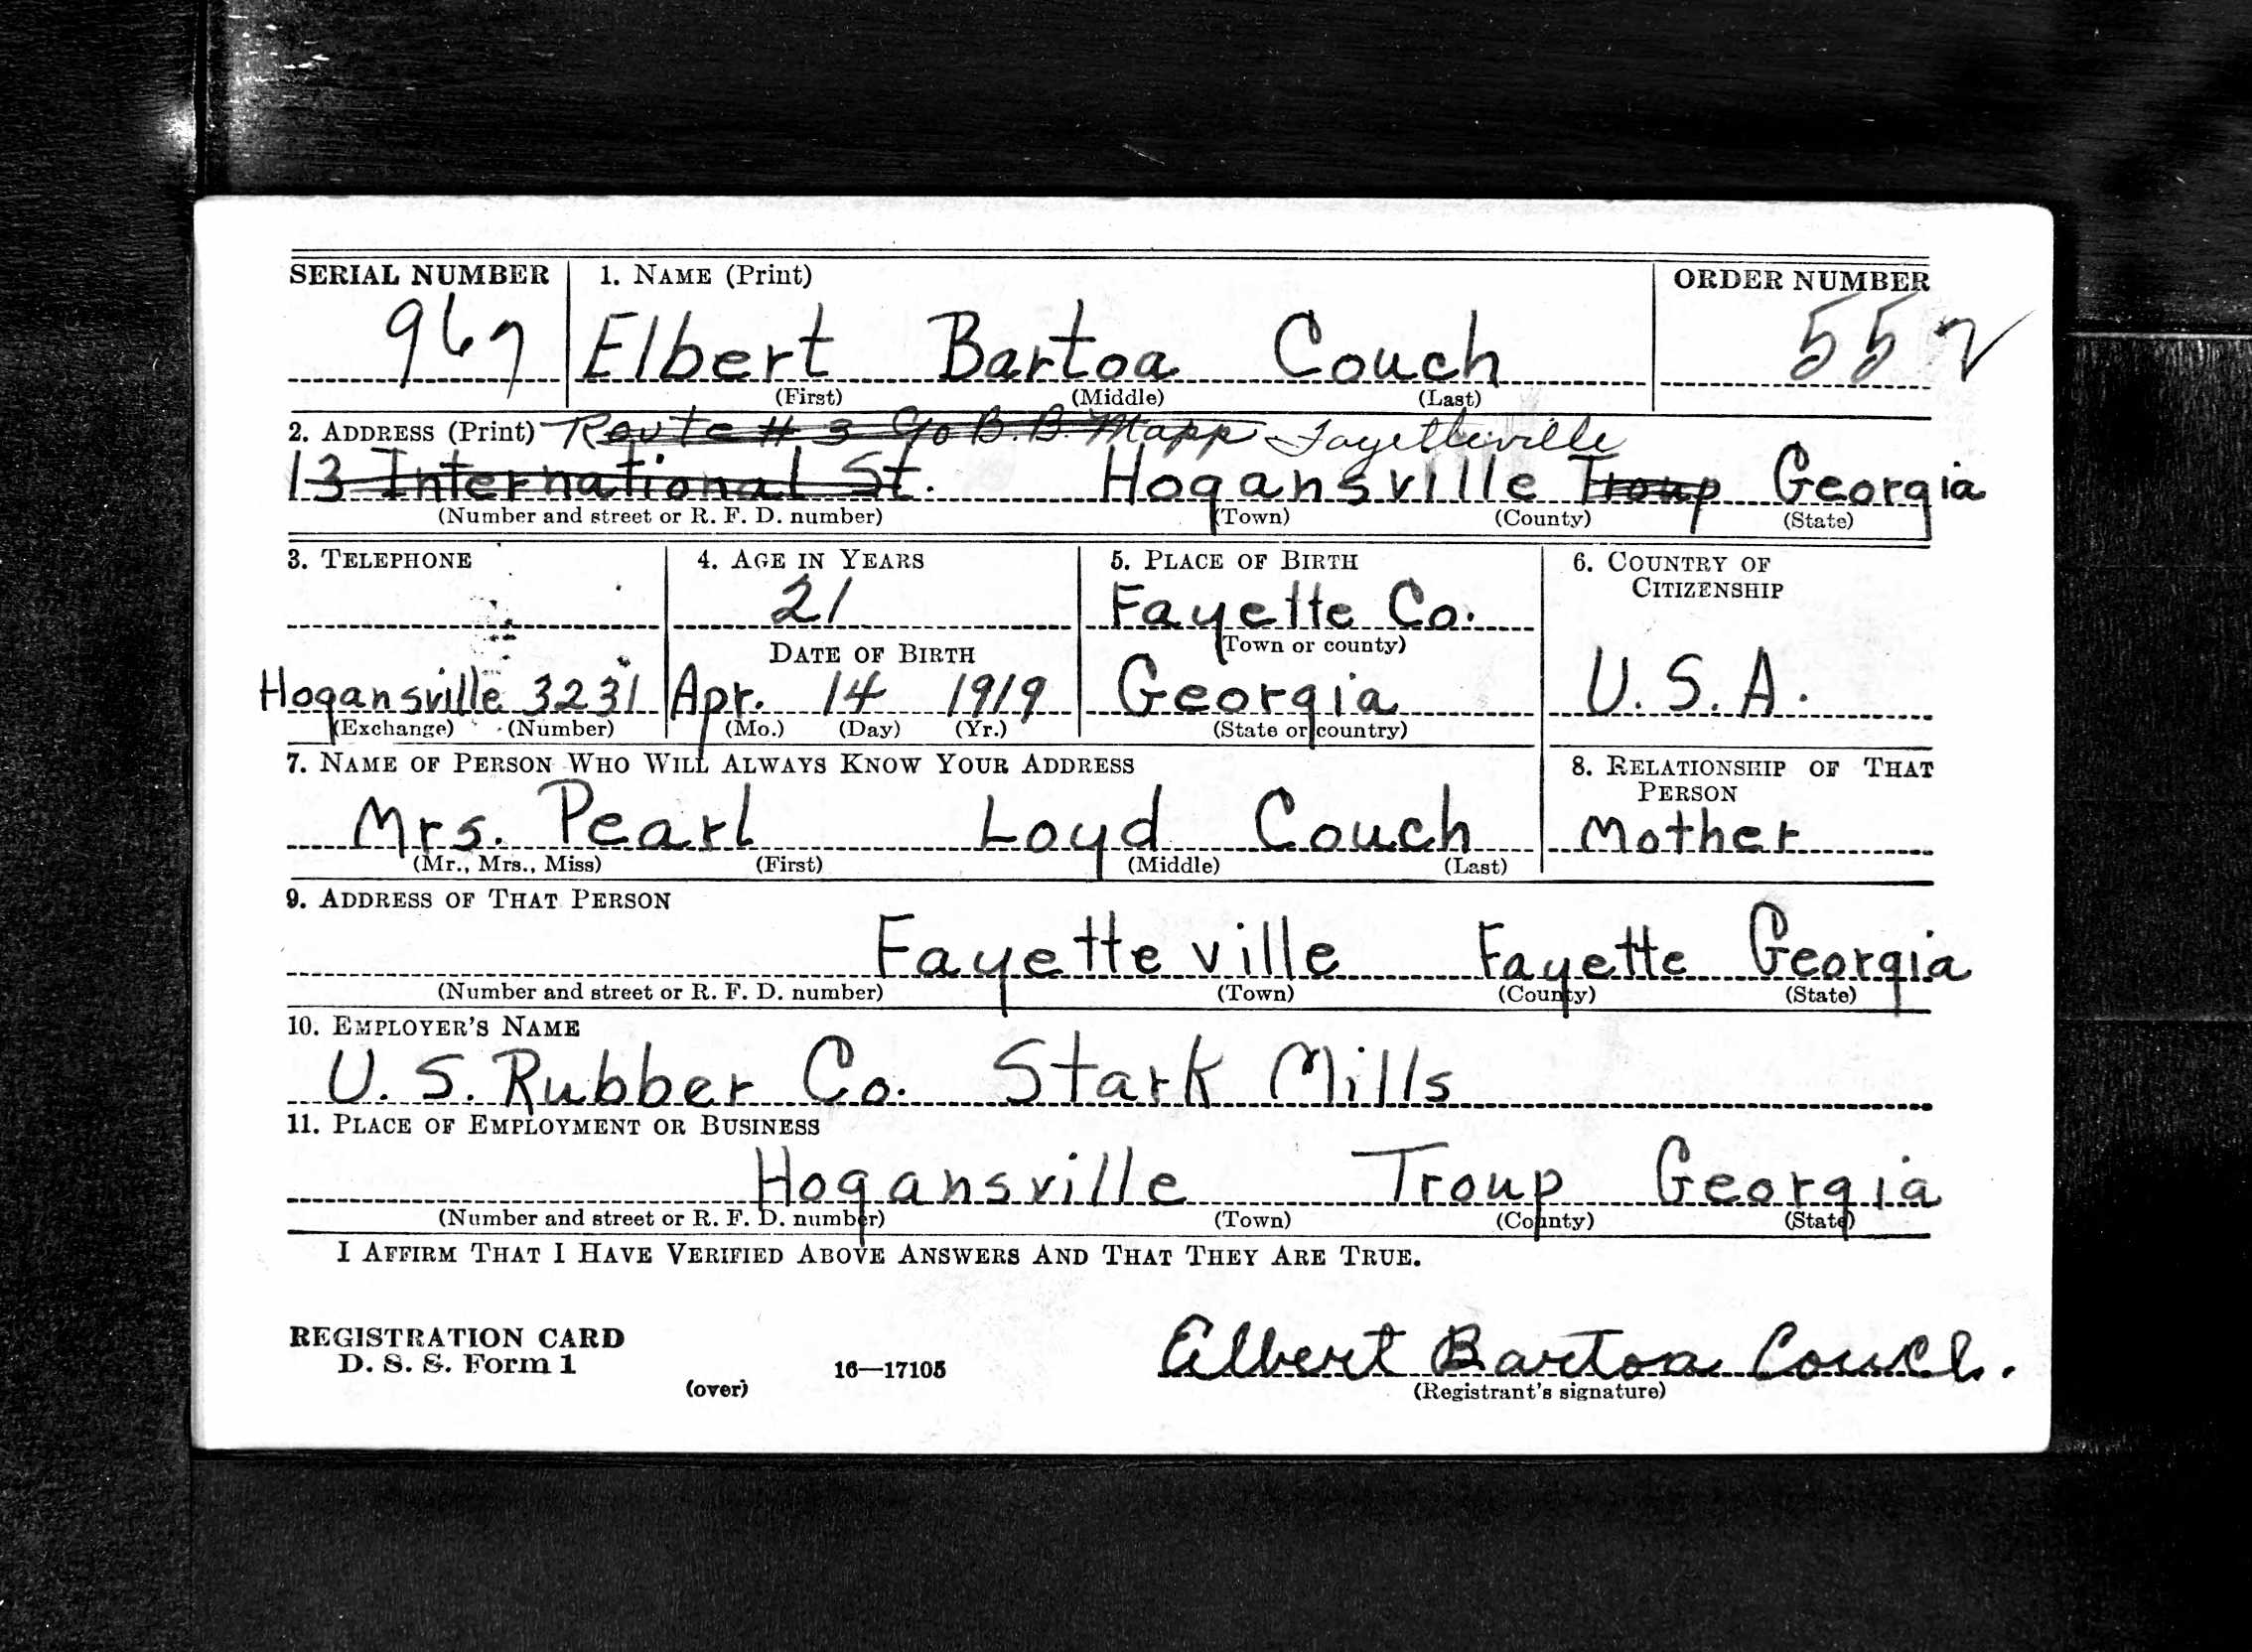 SERIAL NUMBER 1. NAME (Print) ORDER NUMBER
967 Elbert Bartoa Couch 552
(First) (Middle) (Last)
2. ADDRESS (Print) Route # 3 c/o B. B. Mapp Fayetteville
13 International St. Hogansville Troup Georgia
(Number and street or R. F. D. number) (Town) (County) (State)
3. TELEPHONE 4. AGE IN YEARS 5. PLACE OF BIRTH 6. COUNTRY OF
CITIZENSHIP
21 Fayette Co.
DATE OF BIRTH (Town or county)
Hogansville 3231 Apr. 14 1919 Georgia U. S. A.
(Exchange) (Number) (Mo.) (Day) (Yr.) (State or country)
7. NAME OF PERSON WHO WILL ALWAYS KNOW YOUR ADDRESS 8. RELATIONSHIP OF THAT
PERSON
Mrs. Pearl Loyd Couch Mother
(Mr., Mrs., Miss) (First) (Middle) (Last)
9. ADDRESS OF THAT PERSON
Fayetteville Fayette Georgia
(Number and street or R. F. D. number) (Town) (County) (State)
10. EMPLOYER'S NAME
U. S. Rubber Co. Stark Mills
11. PLACE OF EMPLOYMENT OR BUSINESS
Hogansville Troup Georgia
(Number and street or R. F. D. number) (Town) (County) (State)
I AFFIRM THAT I HAVE VERIFIED ABOVE ANSWERS AND THAT THEY ARE TRUE.
REGISTRATION CARD
D. S. S. Form 1 16—17105 Elbert Bartoa Couch.
(over) (Registrant's signature)